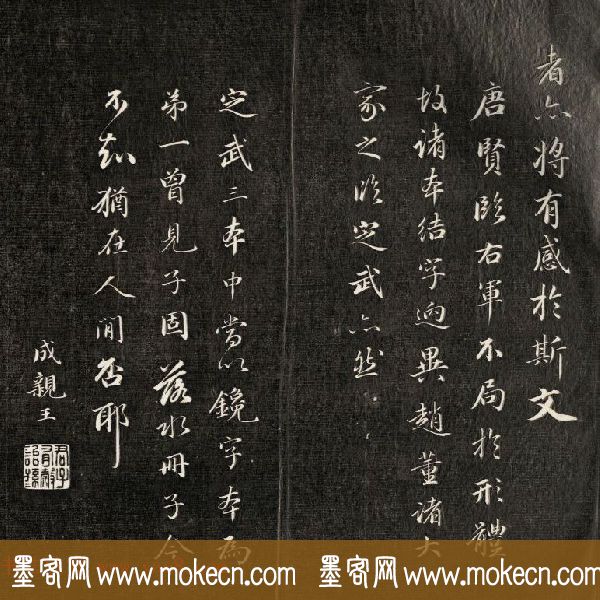 者亦將有感於斯文
唐賢臨右軍不局於形體
故諸本結字迥異趙董諸大
家之臨定武亦然
定武三本中當以鏡字本為
第一曾見子固落水冊子今
不知猶在人間否耶
成親王
墨客网 www.mokecn.com 墨客网 www.mokecn.com